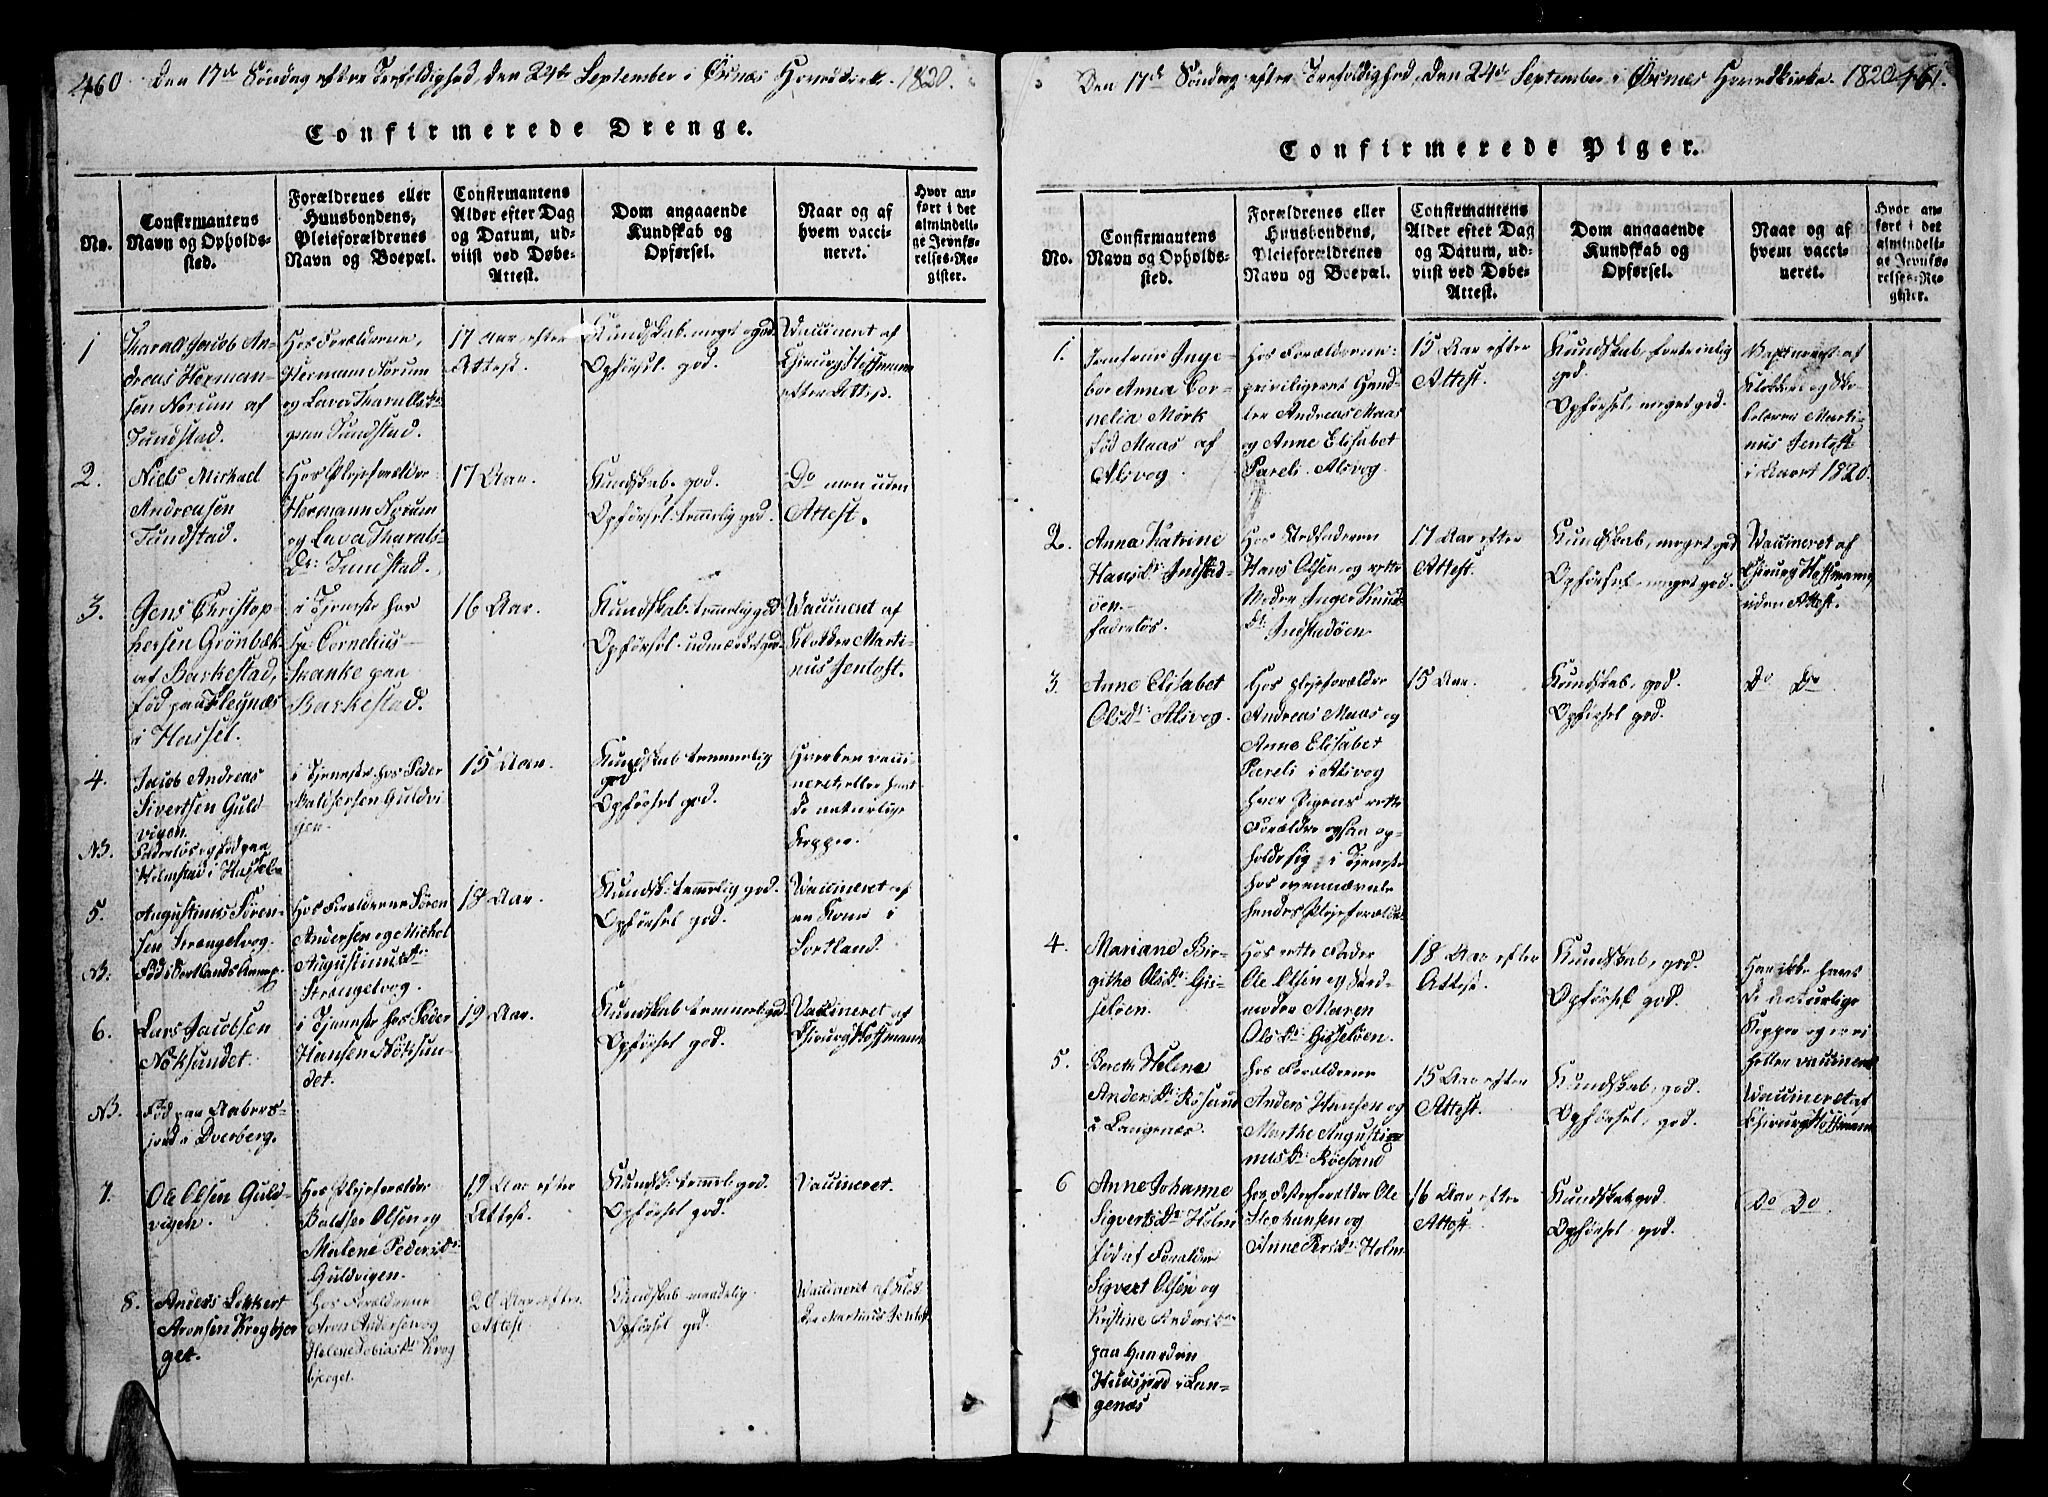 460 Den 17de Søndag efter Trefoldighed, den 24de September i Öxnæs Hovedkirke 1820.
Confirmerede Drenge.
No.
Confirmantens
Navn og Opholds-
sted.
Forældrenes eller
Huusbondens,
Pleieforældrenes
Navn og Boepæl.
Confirmantens
Alder efter Dag
og Datum, ud-
viist ved Døbe-
Attest.
Dom angaaende
Kundskab og
Opførsel.
Naar og af
hvem vacci-
neret.
Hvor an-
ført i det
almindeli-
ge Jevnfø-
relses-Re-
gister.
1
Tharall Jacob An-
dreas Herman-
sen Norum af
Tundstad.
Hos Forældrene,
Hermann Norum
og Lava Tharalls Dr
paa Tundstad.
17 Aar, efter
Attest.
Kundskab. meget god.
Opførsel. god.
Vaccineret af
Chirurg Hoffmann
efter Attest.
2.
Niels Michael
Andreasen
Tundstad.
Hos Plejeforældre
Hermann Norum
og Lava Tharals
Dr: Tundstad.
17 Aar.
Kundskab. god.
Opførsel. temmelig god.
Do men uden
Attest.
3.
Jens Christop
hersen Grönbæk
af Barkestad,
fød paa Fleynæs
i Hassel.
i Tjeneste hos
Hr. Cornelius
Skanke paa
Barkestad.
16 Aar.
Kundskab. temmelig god
Opførsel. udmærket god.
Vaccineret af
Klokker Marti-
nus Jentoft.
4.
Jacob Andreas
Sivertsen Guld-
vigen.
NB.
Faderløs og fød paa
Holmstad i Hassel.
i Tjeneste hos Peder
Baltzersen Guldvi
gen.
15 Aar.
Kundskab temmelig
god
Opførsel god.
Hverken vacci-
neret eller havt
de naturlige
Kopper.
5.
Augustinus Sören-
sen Strengelvog
NB.
Fød i Sortlands Annex.
Hos Forældrene Sören
Andersen og Michel
Augustinus Dr
Strengelvog.
18 Aar.
Kundsk: temmelig god.
Opførsel god.
Vaccineret af
en Kone i
Sortland.
6.
Lars Jacobsen
Nöksundet.
NB.
Fød paa Aabers-
jord i Dverberg.
i Tjeneste hos Peder
Hansen Nöksun-
det.
19 Aar.
Kundskab temmel: god
Opførsel god.
Vaccineret af
Chirurg Hoffmann
7.
Ole Olsen Guld-
vigen.
Hos Plejeforældre
Baltser Olsen og
Malene Peders Dr
Guldvigen.
19 Aar efter
Attest.
Kundsk: temmel: god.
Opførsel god.
Vaccineret.
8.
Anders Lekkert
Aronsen Krogbjer
get.
Hos Forældrene
Aron Andersen og
Helene Tobias Dr Krog
bjerget.
20 Aar efter
Attest.
Kundskab maadelig.
Opførsel god.
Vaccineret af Klok
ker Martinus Jentoft
Den 17de Søndag efter Trefoldighed, den 24de September i Öxnæs Hovedkirke. 1820 461.
Confirmerede Piger.
No.
Confirmantens
Navn og Opholds-
sted.
Forældrenes eller
Huusbondens,
Pleieforældrenes
Navn og Boepæl.
Confirmantens
Alder efter Dag
og Datum, ud-
viist ved Døbe-
Attest.
Dom angaaende
Kundskab og
Opførsel.
Naar og af
hvem vacci-
neret.
Hvor an-
ført i det
almindeli-
ge Jevnfø-
relses-Re-
gister.
1.
Jomfrue Inge-
bor Anna Cor-
nelia Mörk
fød Maas af
Alsvog.
Hos Forældrene:
privilegeret Hand-
ler Andreas Maas
og Anne Elisabet
Pareli. Alsvog.
15 Aar efter
Attest.
Kundskab, fortrinlig
god.
Opførsel, meget god.
af
Klokker og Sko-
lelærer Marti-
nus Jentoft
i Aaret 1820.
2.
Anna Katrine
Hans Dr Indstad-
öen.
faderløs.
Hos Stedfaderen
Hans Olsen, og rette
Moder Inger Knud
Dr Indstadöen.
17 Aar efter
Attest.
Kundskab, meget god
Opførsel. meget god.
Vaccineret af
Chirurg Hoffmann,
uden Attest.
3.
Anne Elisabet
Olsdr Alsvog.
Hos plejeforældre
Andreas Maas og
Anne Elisabet
Pareli i Alsvog
hvor Pigens rette
Forældre ogsaa op-
holde sig i Tjeneste
hos ovennævnte
hendes Plejeforældre.
15 Aar.
Kundskab, god.
Opførsel god.
Do Do
4.
Mariane Bir-
githe Ols Dr Gis-
selöen.
Hos rette Fader
Ole Olsen og Sted
moder Maren
Ols Dr Gisselöen.
18 Aar efter
Attest.
Kundskab, god.
Opførsel god.
Har ikke havt
de naturlige
Kopper og er ei
heller vaccineret
5.
Bereth Helena
Anders Dr Rösand
i Langenæs.
Hos Forældrene
Anders Hansen og
Marthe Augusti
nus Dr Röesand
15 Aar efter
Attest.
Kundskab, god.
Opførsel, god.
Vaccineret af
Chirurg Hoffmann
6
Anne Johanne
Sigverts Dr Holm
fød af Forældre
Sigvert Olsen og
Kristine Anders Dr
paa Gaarden
i Lan-
genæs
hos Fosterforældre Ole
Stephansen og
Anne Pers Dr Holm
16 Aar efter
Attest.
Kundskab god.
Opførsel god.
Do Do